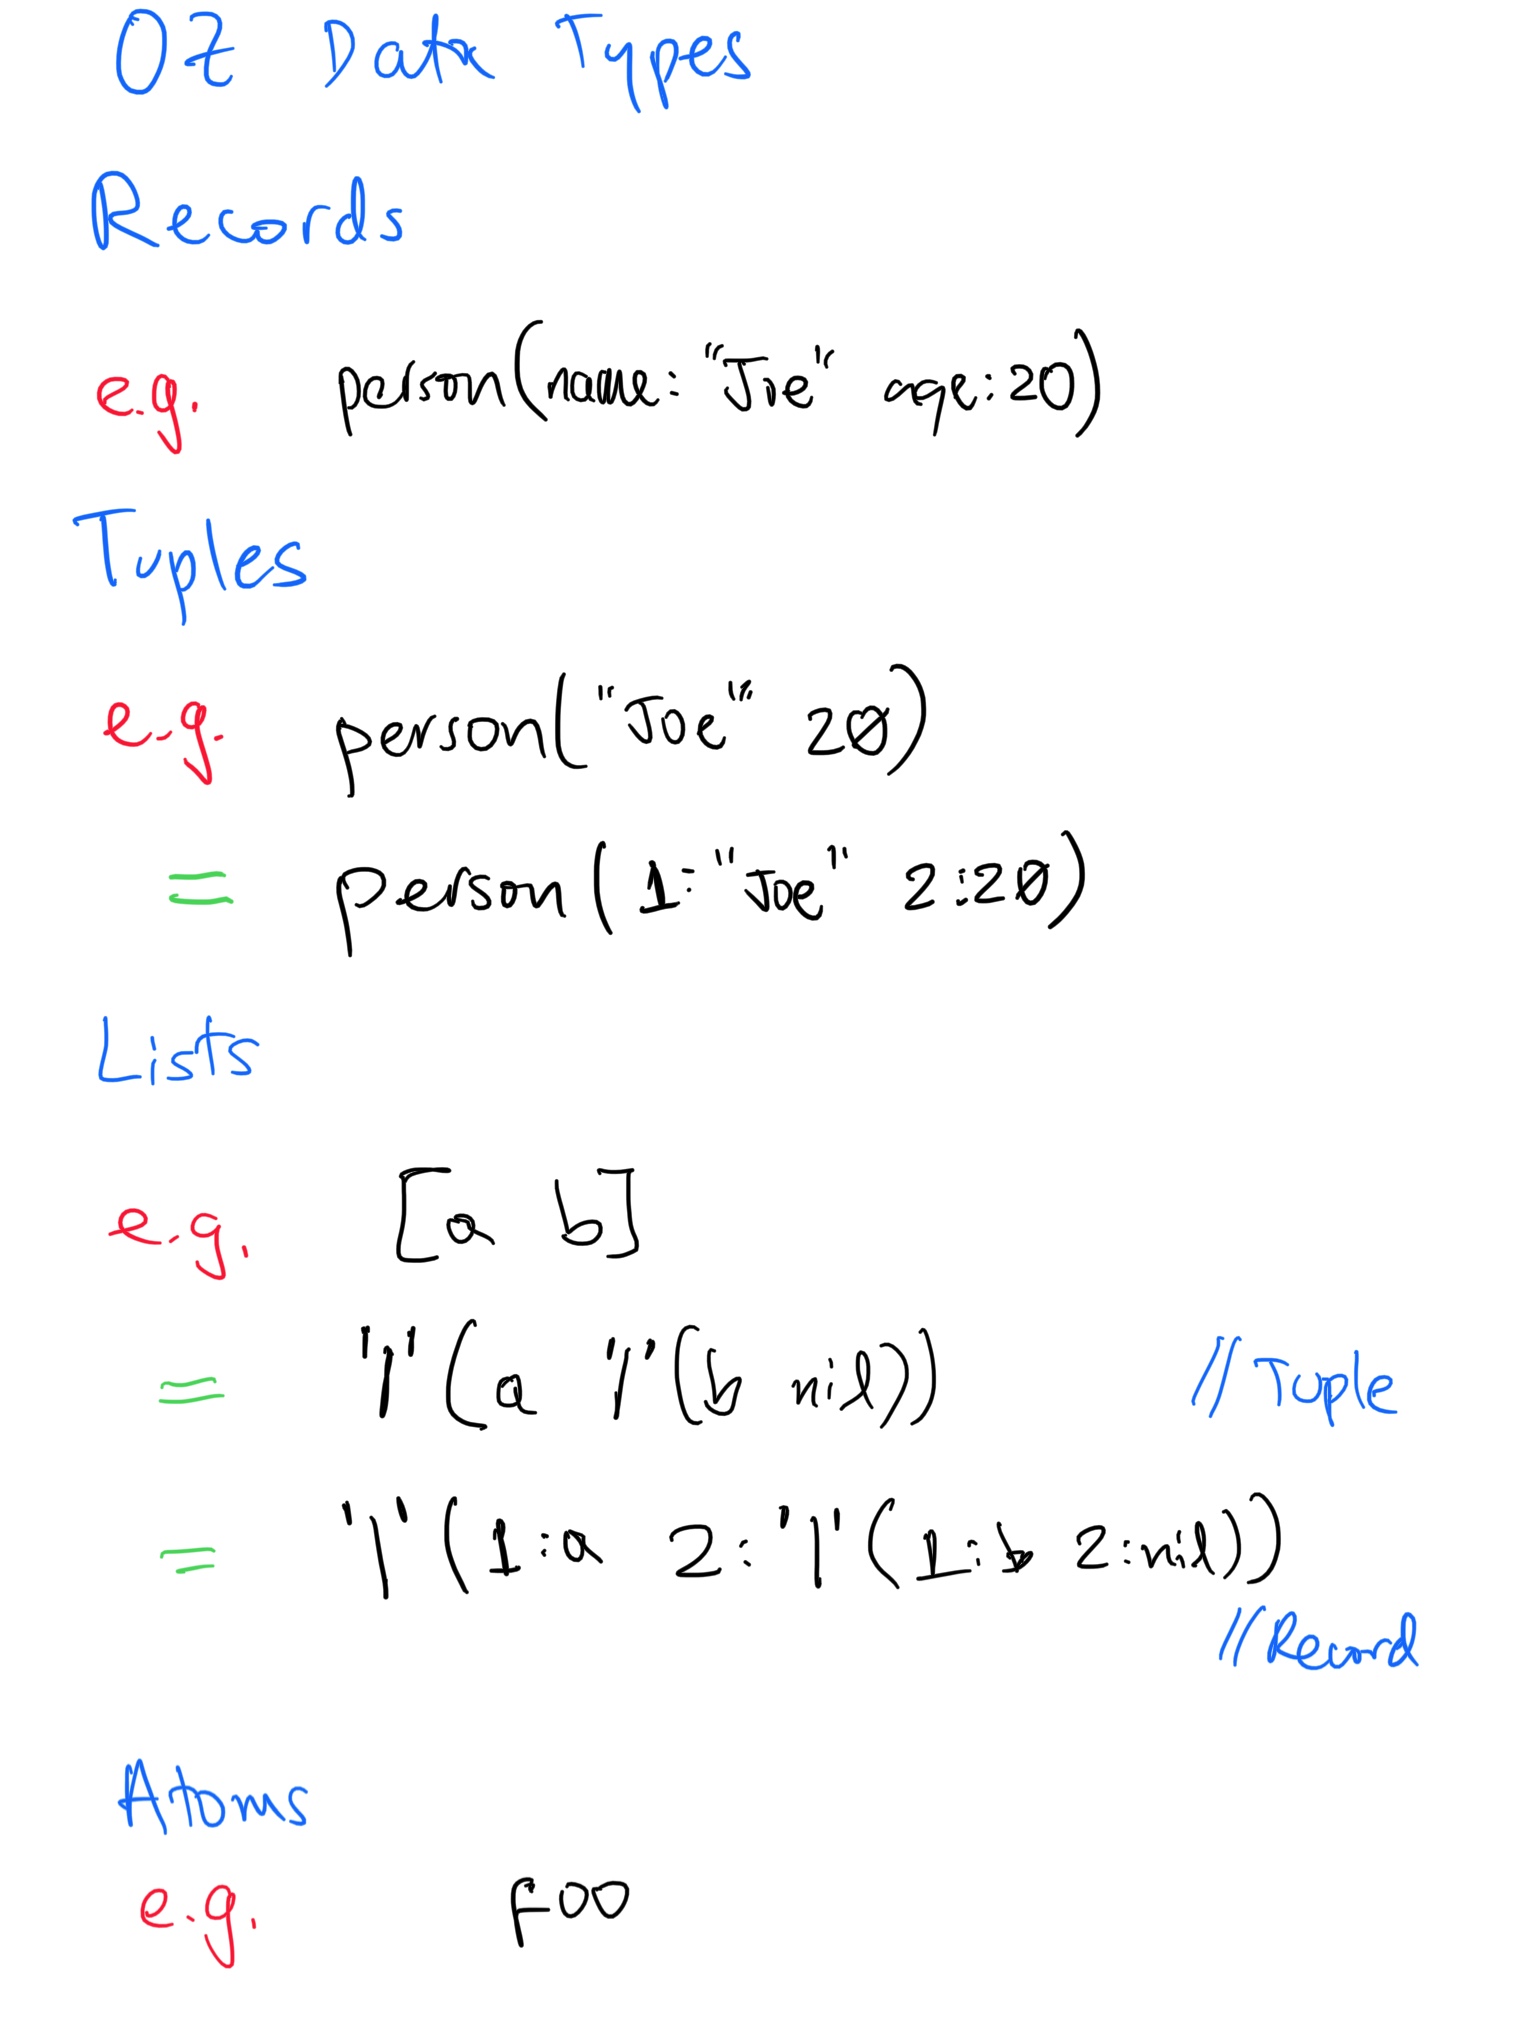 OZ Data Types
Records
e.g. person(name:"Joe" age:20)
Tuples
e.g. person("Joe" 20)
= person(1:"Joe" 2:20)
Lists
e.g. [a b]
= '|'(a '|'(b nil)) //Tuple
= '|'(1:a 2:'|'(1:b 2:nil))
//Record
Atoms
e.g. foo